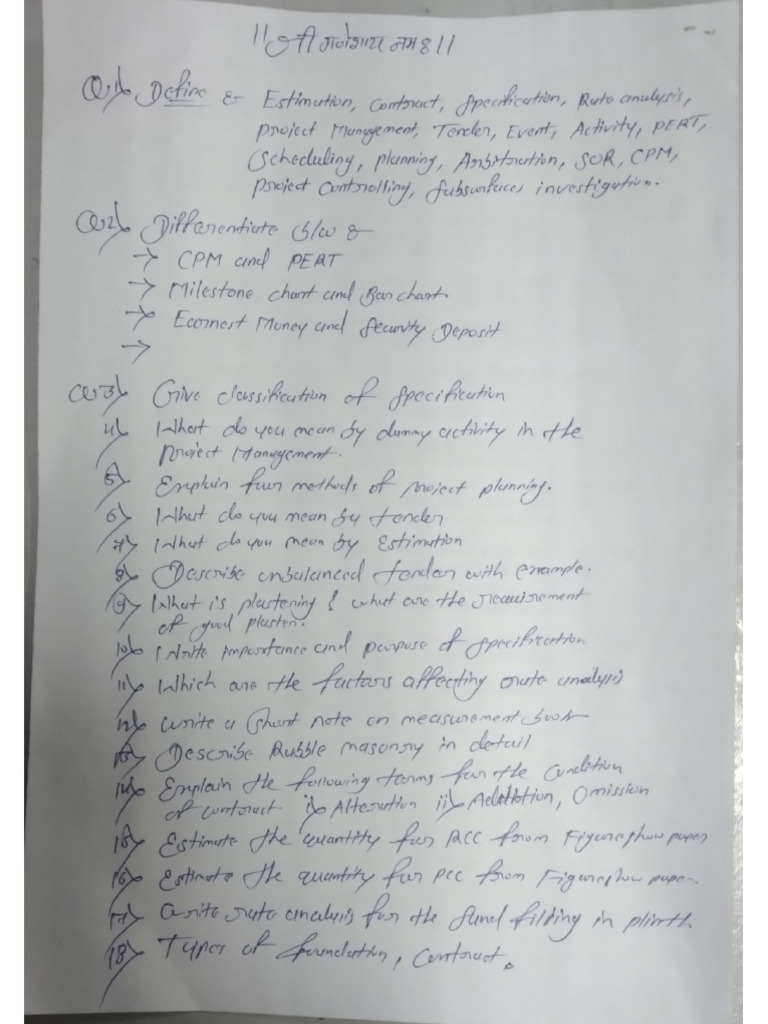 ॥ श्री गणेशाय नमः ॥
Q1) Define :- Estimation, Contract, Specification, Rate analysis,
Project Management, Tender, Event, Activity, PERT,
Scheduling, planning, Arbitration, SOR, CPM,
Project Controlling, Subsurfaces investigation.
Q2) Differentiate b/w :-
→ CPM and PERT
→ Milestone chart and Bar chart.
→ Earnest Money and Security Deposit
→
Q3) Give classification of specification
4) What do you mean by dummy activity in the
Project Management.
5) Explain four methods of project planning.
6) What do you mean by tender
7) What do you mean by Estimation
8) Describe unbalanced tender with example.
9) What is plastering & what are the requirement
of good plaster.
10) Write importance and purpose of specification
11) Which are the factors affecting rate analysis
12) Write a Short note on measurement book
13) Describe Rubble masonry in detail
14) Explain the following terms for the Condition
of contract i) Alteration ii) Addition, Omission
15) Estimate the quantity for RCC from Figure show paper
16) Estimate the quantity for PCC from Figure show paper.
17) Write rate analysis for the Sand filling in plinth
18) Types of foundation, Contract.